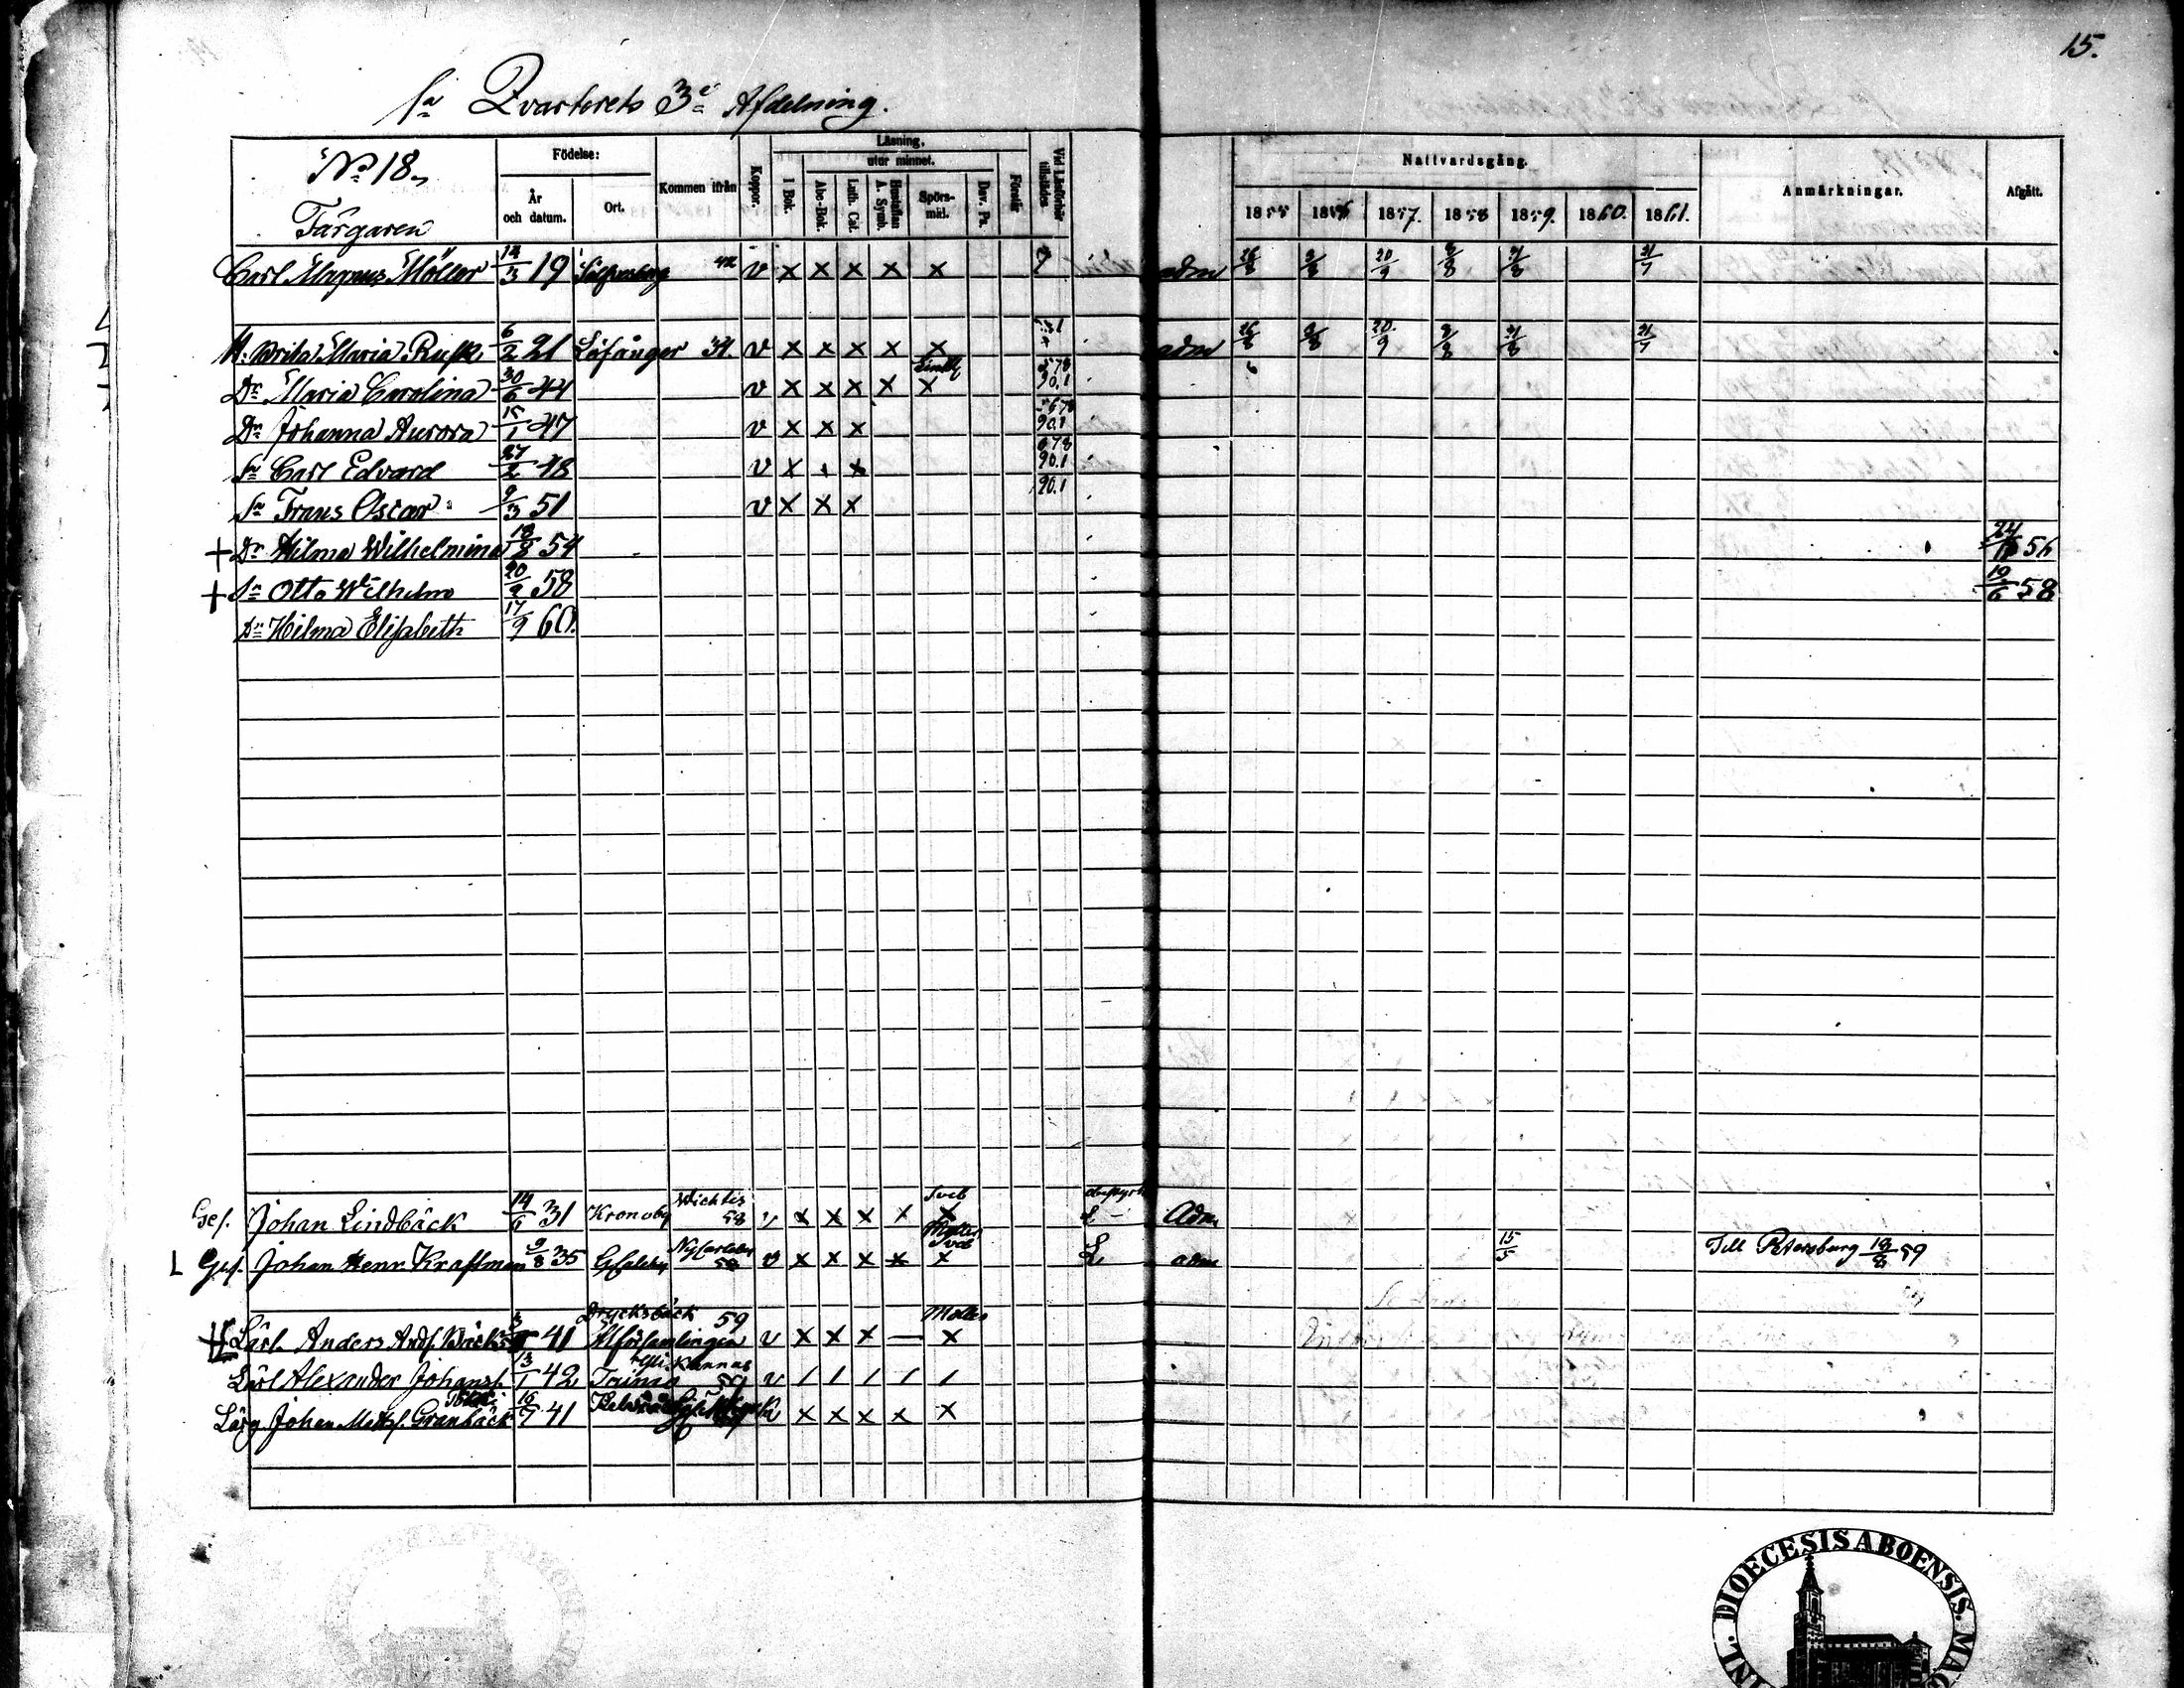 15.
1a Qvarterets 3e Afdelning.
No 18. Färgaren
Födelse: År och datum. Ort. Kommen ifrån Koppor. Läsning, I Bok. utur minnet. Abc-Bok. Luth. Cat. Hustaflan A. Symb. Spörsmål. Dav. Ps. Förstår Vid Läsförhör tillstädes
Nattvardsgång. 1855 1856 1857. 1858 1859. 1860. 1861. Anmärkningar. Afgått.
Carl Magnus Möller 14/3 19 42 v x x x x x adm 26/8 3/8 20/9 8/8 21/8 21/7
H. Brita Maria Rufk 6/2 21 Löfånger 34. v x x x x x adm 26/8 3/8 20/9 8/8 21/8 21/7
Dr Maria Carolina 30/6 44 v x x x x x 578 90.1
Dr Johanna Aurora 15/1 47 v x x x 5678 90.1
Sn Carl Edvard 27/2 48 v x x x 678 90.1
Sn Frans Oscar 9/3 51 v x x x 90.1
+ Dr Hilma Wilhelmina 18/8 54 56
+ Sn Otto Wilhelm 20/2 58 19/6 58
Dr Hilma Elisabeth 17/9 60.
Ges. Johan Lindbäck 14/6 31 Kronoby Wichtis 58 v x x x x Sveb x Adm
L Ges. Johan Henr Kraftman 9/8 35 Nycarleby 58 v x x x x Möller Sveb x L. adm 15/5 Till Petersburg 18/8 59
Lärl. Anders Andf. Bäck 41 Drycksbäck 59 v x x x — Möller x
Lärl Alexander Johansf. 13/1 42 59 v / / / / /
Lärg Johan Mattsf. Granbäck 16/7 41 x x x x x
DIOECESIS ABOENSIS.